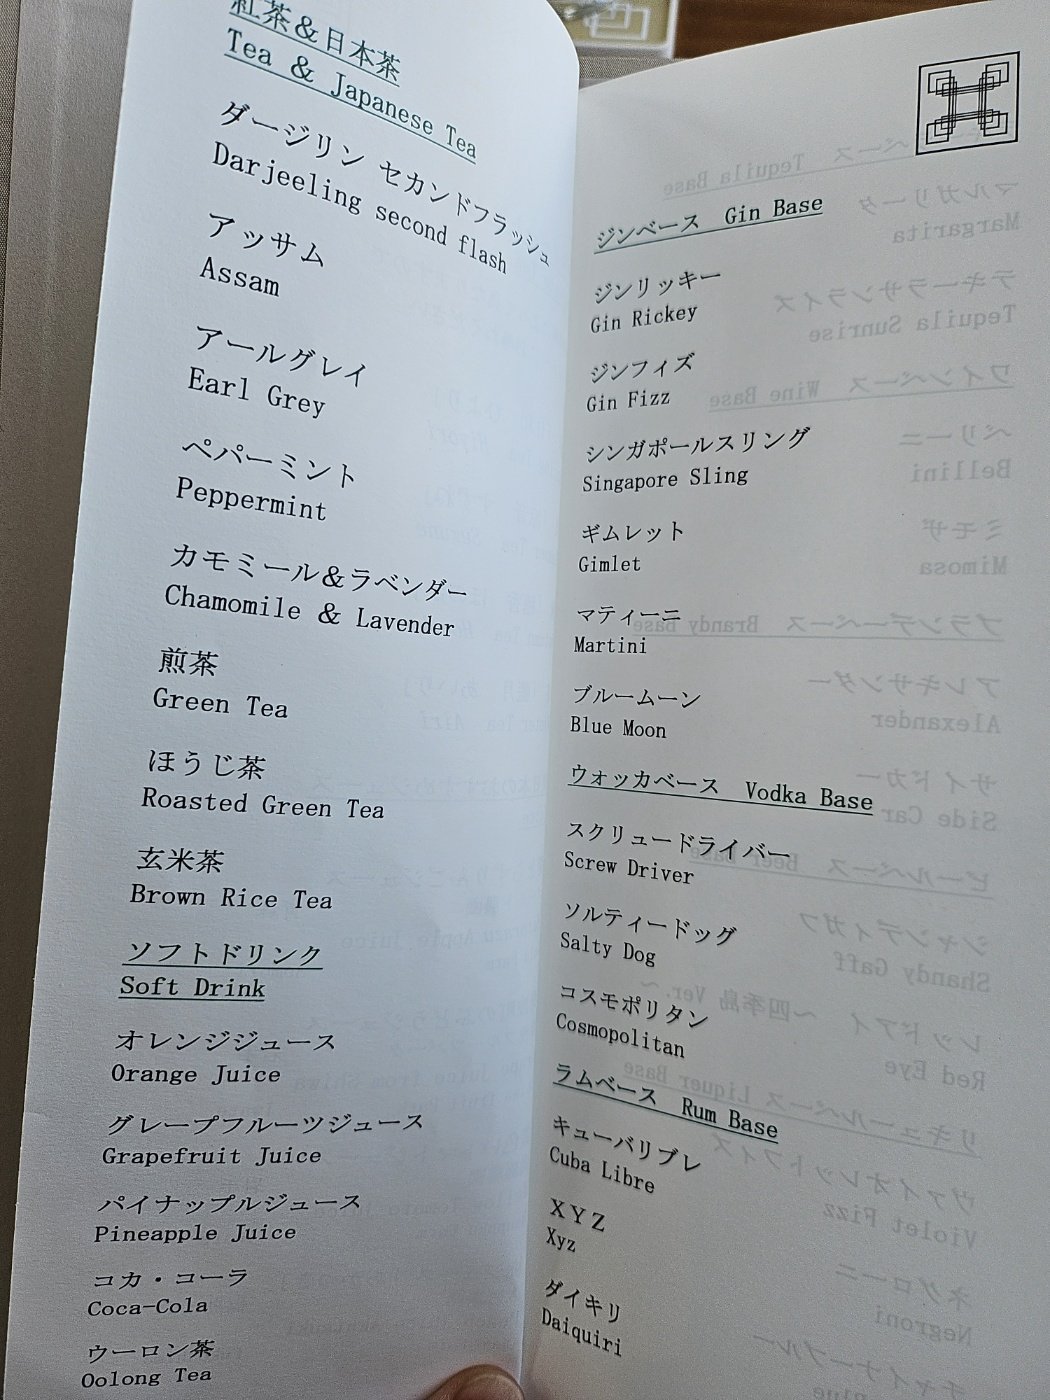 紅茶＆日本茶
Tea & Japanese Tea
ダージリン セカンドフラッシュ
Darjeeling second flash
アッサム
Assam
アールグレイ
Earl Grey
ペパーミント
Peppermint
カモミール＆ラベンダー
Chamomile & Lavender
煎茶
Green Tea
ほうじ茶
Roasted Green Tea
玄米茶
Brown Rice Tea
ソフトドリンク
Soft Drink
オレンジジュース
Orange Juice
グレープフルーツジュース
Grapefruit Juice
パイナップルジュース
Pineapple Juice
コカ・コーラ
Coca-Cola
ウーロン茶
Oolong Tea
ジンベース Gin Base
ジンリッキー
Gin Rickey
ジンフィズ
Gin Fizz
シンガポールスリング
Singapore Sling
ギムレット
Gimlet
マティーニ
Martini
ブルームーン
Blue Moon
ウォッカベース Vodka Base
スクリュードライバー
Screw Driver
ソルティードッグ
Salty Dog
コスモポリタン
Cosmopolitan
ラムベース Rum Base
キューバリブレ
Cuba Libre
ＸＹＺ
Xyz
ダイキリ
Daiquiri